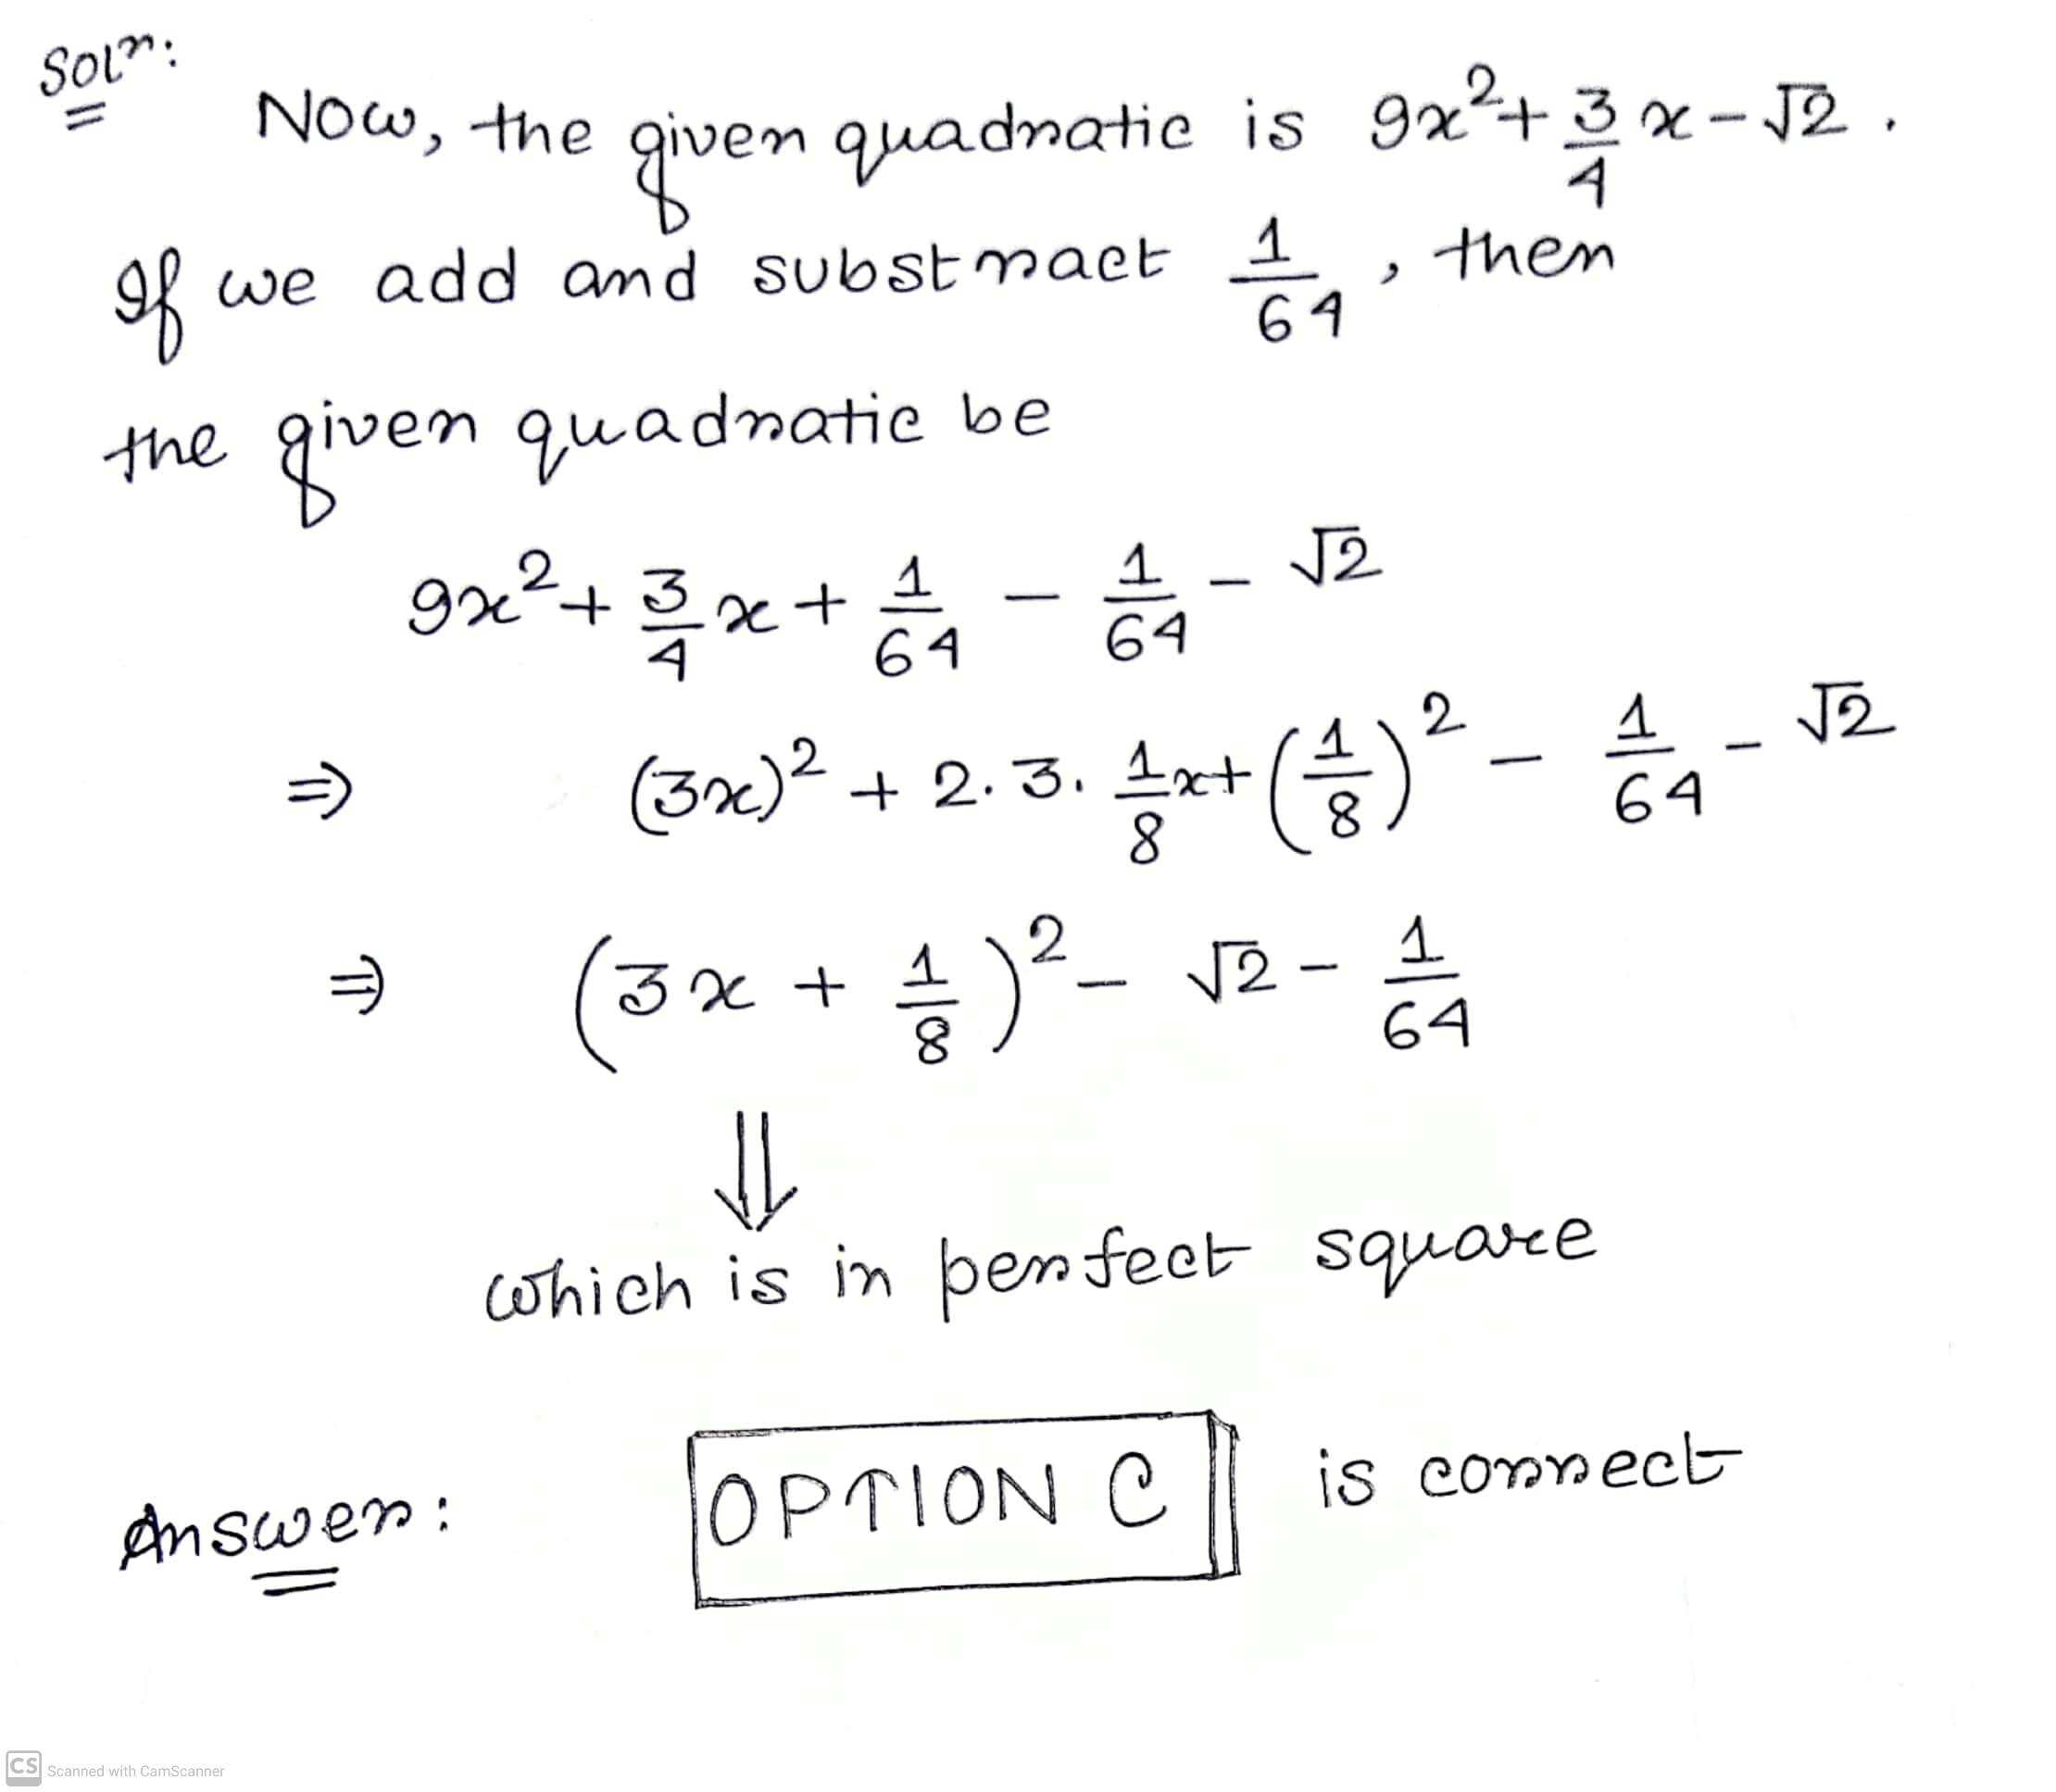 Solⁿ:
Now, the given quadratic is 9x²+ 3/4 x - √2 .
If we add and substract 1/64 , then
the given quadratic be
9x² + 3/4 x + 1/64 - 1/64 - √2
⇒ (3x)² + 2. 3. 1/8 x + (1/8)² - 1/64 - √2
⇒ (3x + 1/8)² - √2 - 1/64
⇓
which is in perfect square
Answer: OPTION C is correct
CS Scanned with CamScanner